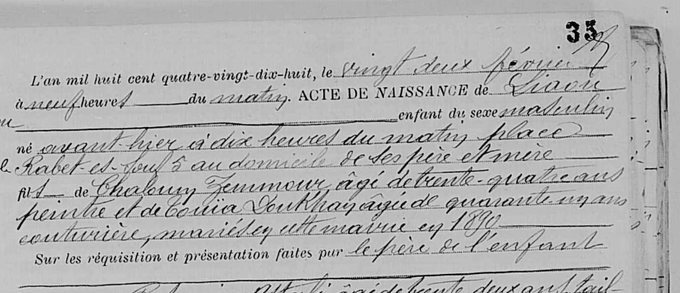 35
L'an mil huit cent quatre-vingt-dix-huit, le vingt deux février
à neuf heures du matin. ACTE DE NAISSANCE de Liaou
enfant du sexe masculin
né avant-hier à dix heures du matin place
Rabet-es-Souf 5 au domicile de ses père et mère
fils de Chaloum Zemmour, âgé de trente-quatre ans
peintre et de Doukhan âgée de quarante un ans
couturière, mariés en cette mairie en 1890
Sur les réquisition et présentation faites par le père de l'enfant
âgé de trente deux ans tail-